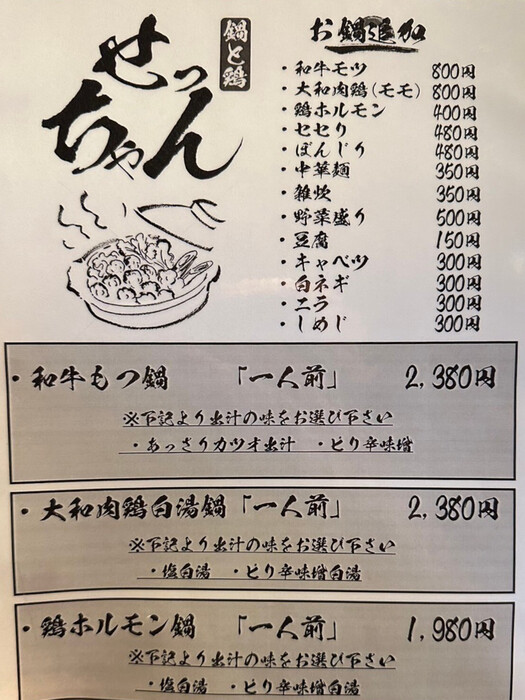 鍋と鶏
せっちゃん
お鍋追加
・和牛モツ 800円
・大和肉鶏(モモ) 800円
・鶏ホルモン 400円
・セセリ 480円
・ぼんじり 480円
・中華麺 350円
・雑炊 350円
・野菜盛り 500円
・豆腐 150円
・キャベツ 300円
・白ネギ 300円
・ニラ 300円
・しめじ 300円
・和牛もつ鍋 「一人前」 2,380円
※下記より出汁の味をお選び下さい
・あっさりカツオ出汁 ・ピリ辛味噌
・大和肉鶏白湯鍋「一人前」 2,380円
※下記より出汁の味をお選び下さい
・塩白湯 ・ピリ辛味噌白湯
・鶏ホルモン鍋 「一人前」 1,980円
※下記より出汁の味をお選び下さい
・塩白湯 ・ピリ辛味噌白湯